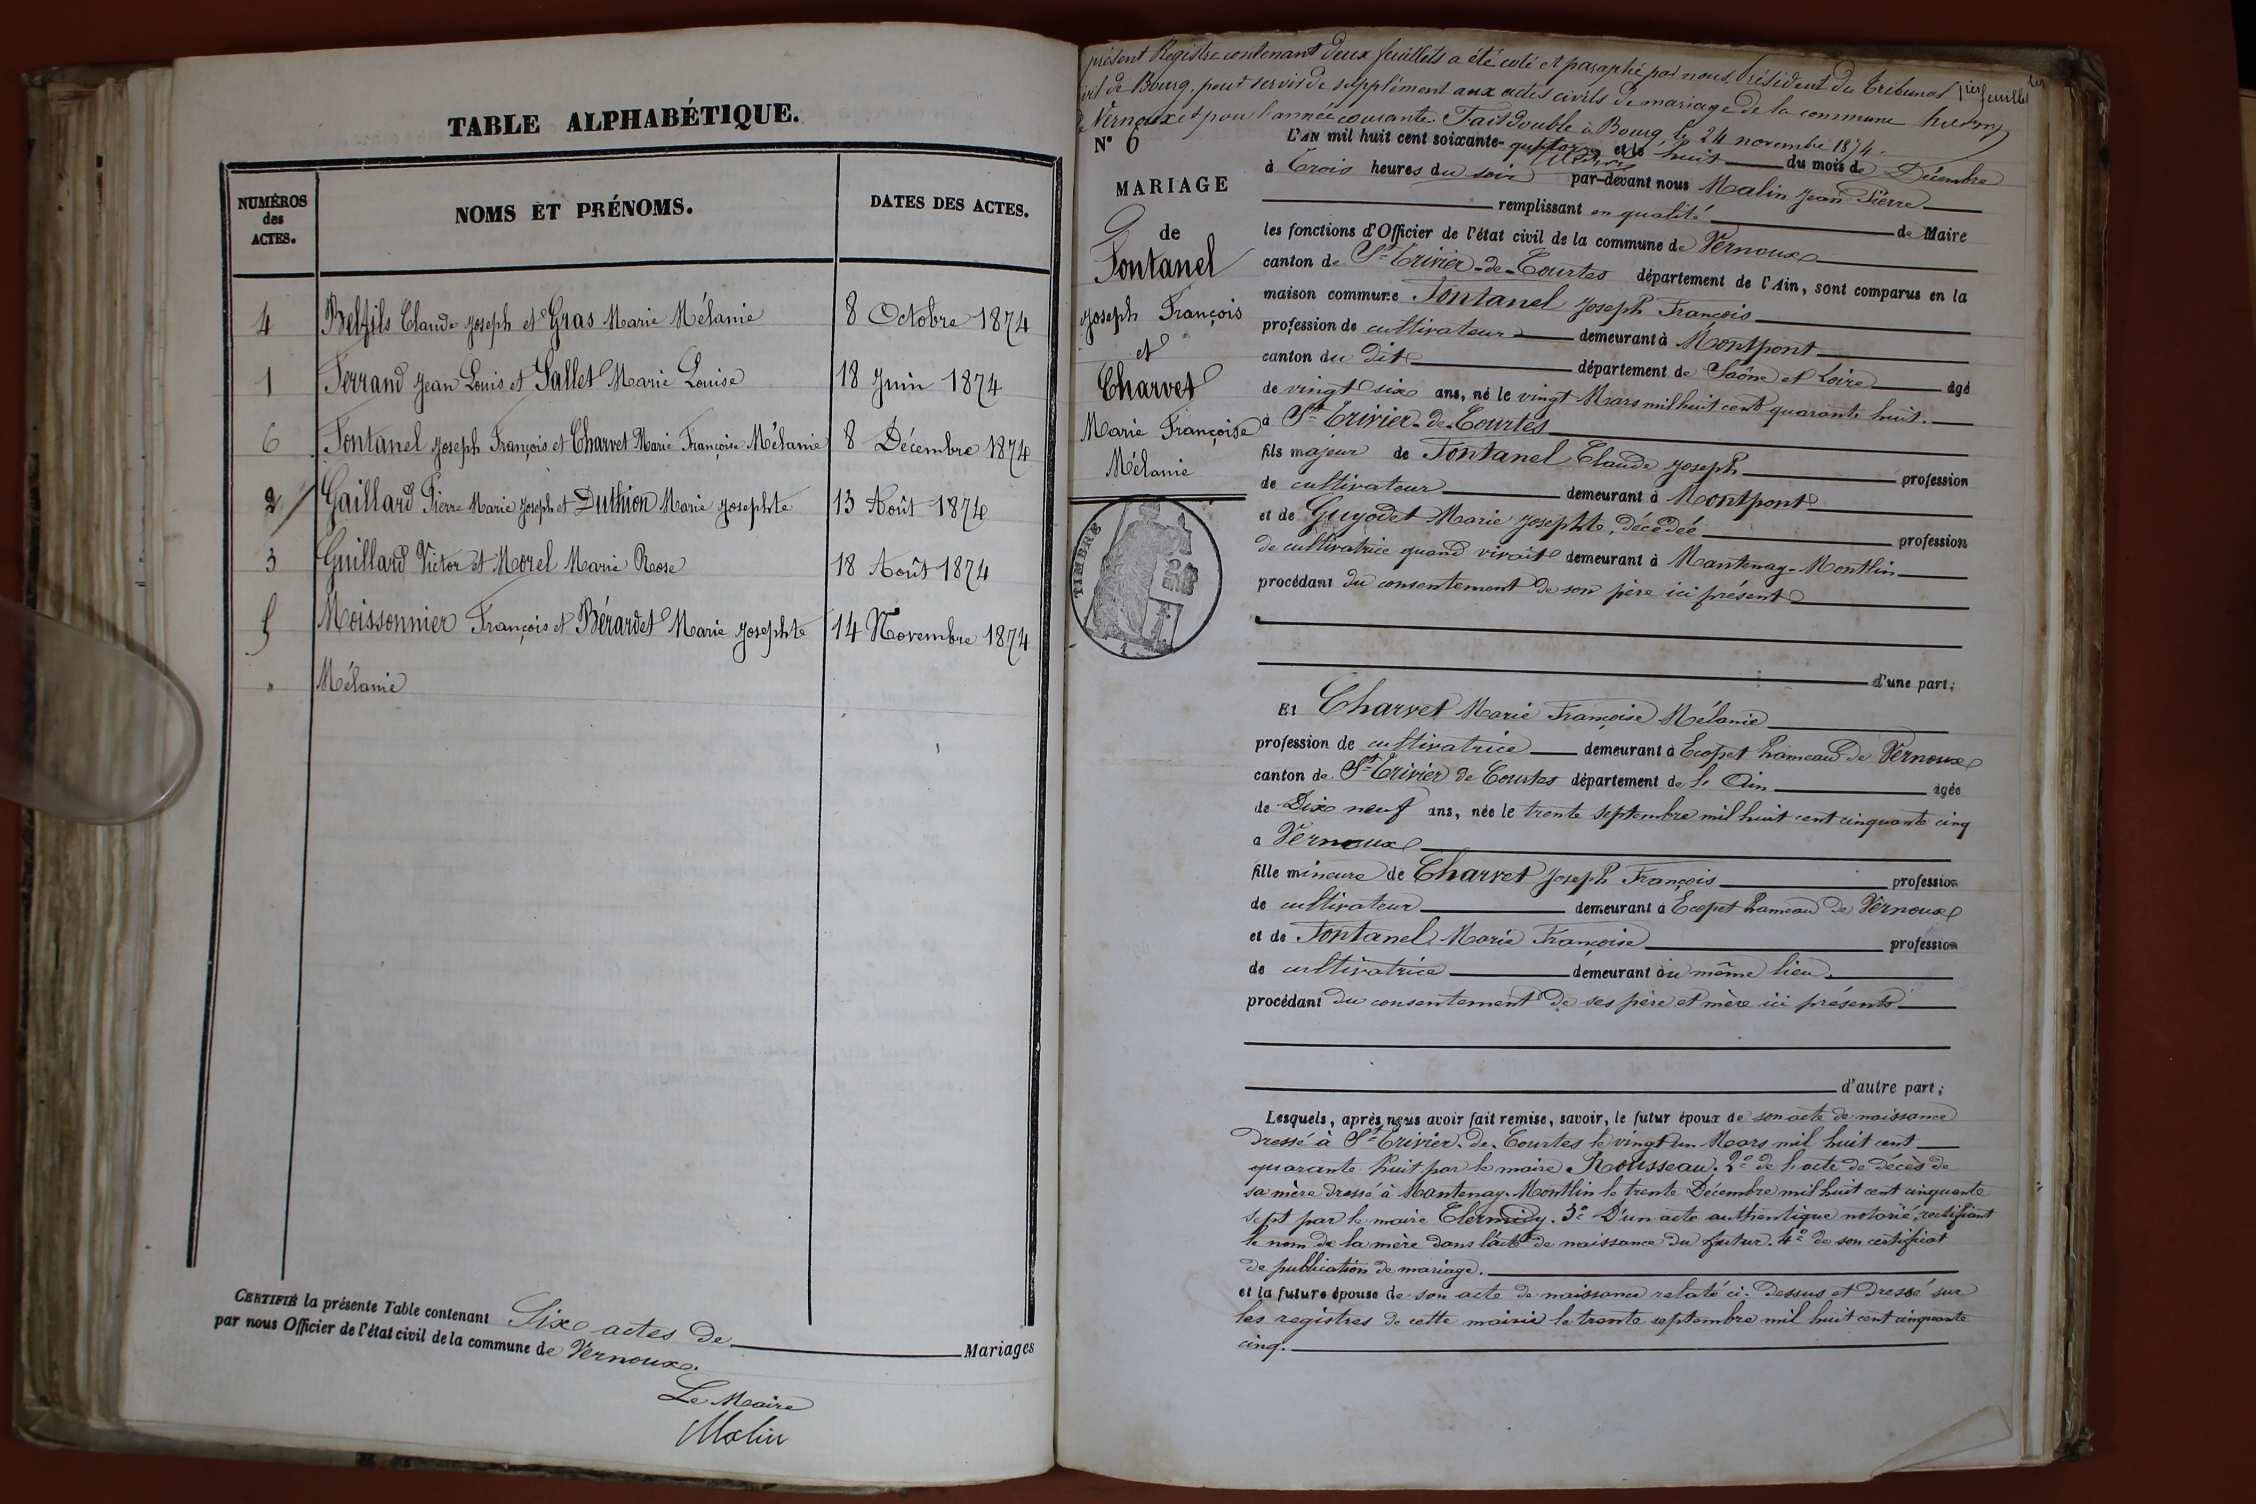 TABLE ALPHABÉTIQUE.
NUMÉROS des ACTES. NOMS ET PRÉNOMS. DATES DES ACTES.
4 Belfils Claude Joseph et Gras Marie Mélanie 8 Octobre 1874
1 Ferrand Jean Louis et Pallet Marie Louise 18 Juin 1874
6 Fontanel Joseph François et Charvet Marie Françoise Mélanie 8 Décembre 1874
2 Gaillard Pierre Marie Joseph et Duthion Marie Josephte 13 Août 1874
3 Guillard Victor et Morel Marie Rose 18 Août 1874
5 Moissonnier François et Bérardet Marie Josephte 14 Novembre 1874
" Mélanie
CERTIFIÉ la présente Table contenant Six actes de Mariages
par nous Officier de l'état civil de la commune de Vernoux.
Le Maire
Malin
présent Registre contenant deux feuillets a été coté et paraphé par nous, Président du Tribunal
civil de Bourg, pour servir de supplément aux actes civils de mariage de la commune
de Vernoux et pour l'année courante. Fait double à Bourg, le 24 novembre 1874.
1er feuillet
N° 6
MARIAGE
de
Fontanel
Joseph François
et
Charvet
Marie Françoise
Mélanie
TIMBRE
L'AN mil huit cent soixante-quatorze et le huit du mois de Décembre
à Trois heures du soir par-devant nous Malin Jean Pierre
remplissant en qualité de Maire
les fonctions d'Officier de l'état civil de la commune de Vernoux
canton de St Trivier-de-Courtes département de l'Ain, sont comparus en la
maison commune Fontanel Joseph François
profession de cultivateur demeurant à Montpont
canton du dit département de Saône et Loire âgé
de vingt six ans, né le vingt Mars mil huit cent quarante huit.
à St Trivier-de-Courtes
fils majeur de Fontanel Claude Joseph profession
de cultivateur demeurant à Montpont
et de Guyodet Marie Josephte, décédée profession
de cultivatrice quand vivait demeurant à Mantenay-Montlin
procédant du consentement de son père ici présent
d'une part;
Et Charvet Marie Françoise Mélanie
profession de cultivatrice demeurant à Ecopet hameau de Vernoux
canton de St Trivier de Courtes département de l'Ain âgée
de Dix neuf ans, née le trente septembre mil huit cent cinquante cinq
à Vernoux
fille mineure de Charvet Joseph François profession
de cultivateur demeurant à Ecopet hameau de Vernoux
et de Fontanel Marie Françoise profession
de cultivatrice demeurant au même lieu.
procédant du consentement de ses père et mère ici présents
d'autre part;
Lesquels, après nous avoir fait remise, savoir, le futur époux de son acte de naissance
dressé à St Trivier-de-Courtes le vingt un Mars mil huit cent
quarante huit par le maire Rousseau. 2° de l'acte de décès de
sa mère dressé à Mantenay-Montlin le trente Décembre mil huit cent cinquante
sept par le maire 3° D'un acte authentique notarié, rectifiant
le nom de la mère dans l'acte de naissance du futur. 4° de son certificat
de publication de mariage.
et la future épouse de son acte de naissance relaté ci-dessus et dressé sur
les registres de cette mairie le trente septembre mil huit cent cinquante
cinq.